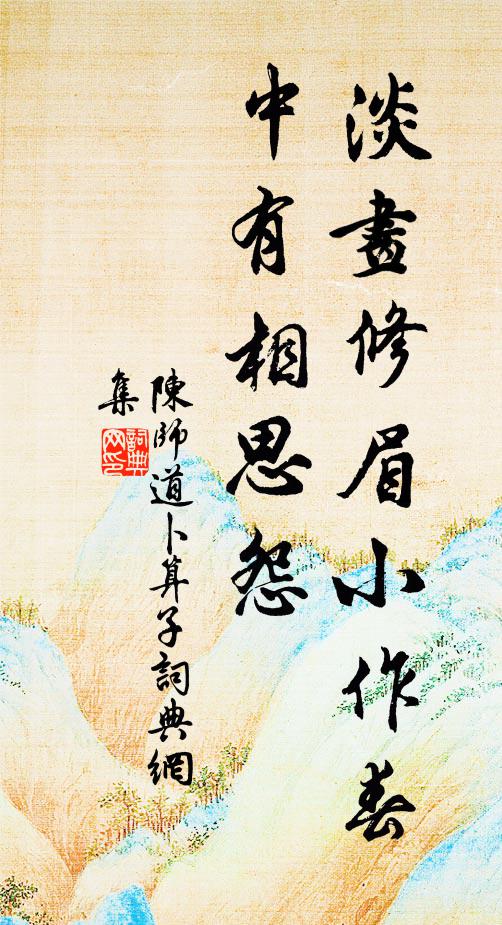 淡畫修眉小作春
中有相思怨
陳師道卜算子詞典網
集
詞典
网印